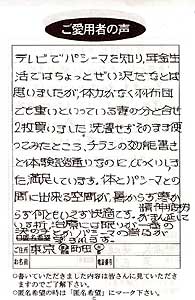 ご愛用者の声
テレビでパシーマを知り、年金生
活ではちょっとぜい沢だなとは
思いましたが、体力がなく羽布団
でも重いといっている妻の分と合せ
2枚買いました。洗濯せずそのまま使
ってみたところ、チラシの効能書き
と体験談通りなのにびっくりしま
した。満足しています。体とパシーマとの
間に出来る空間が、暑からず寒か
らず何ともいえず快適です。
ご住所 東京 町田
お名前
電話番号
○書いていただきました内容は皆さんに見ていただき
ますのでご了解下さい。
○匿名希望の時は「匿名希望」にマーク下さい。